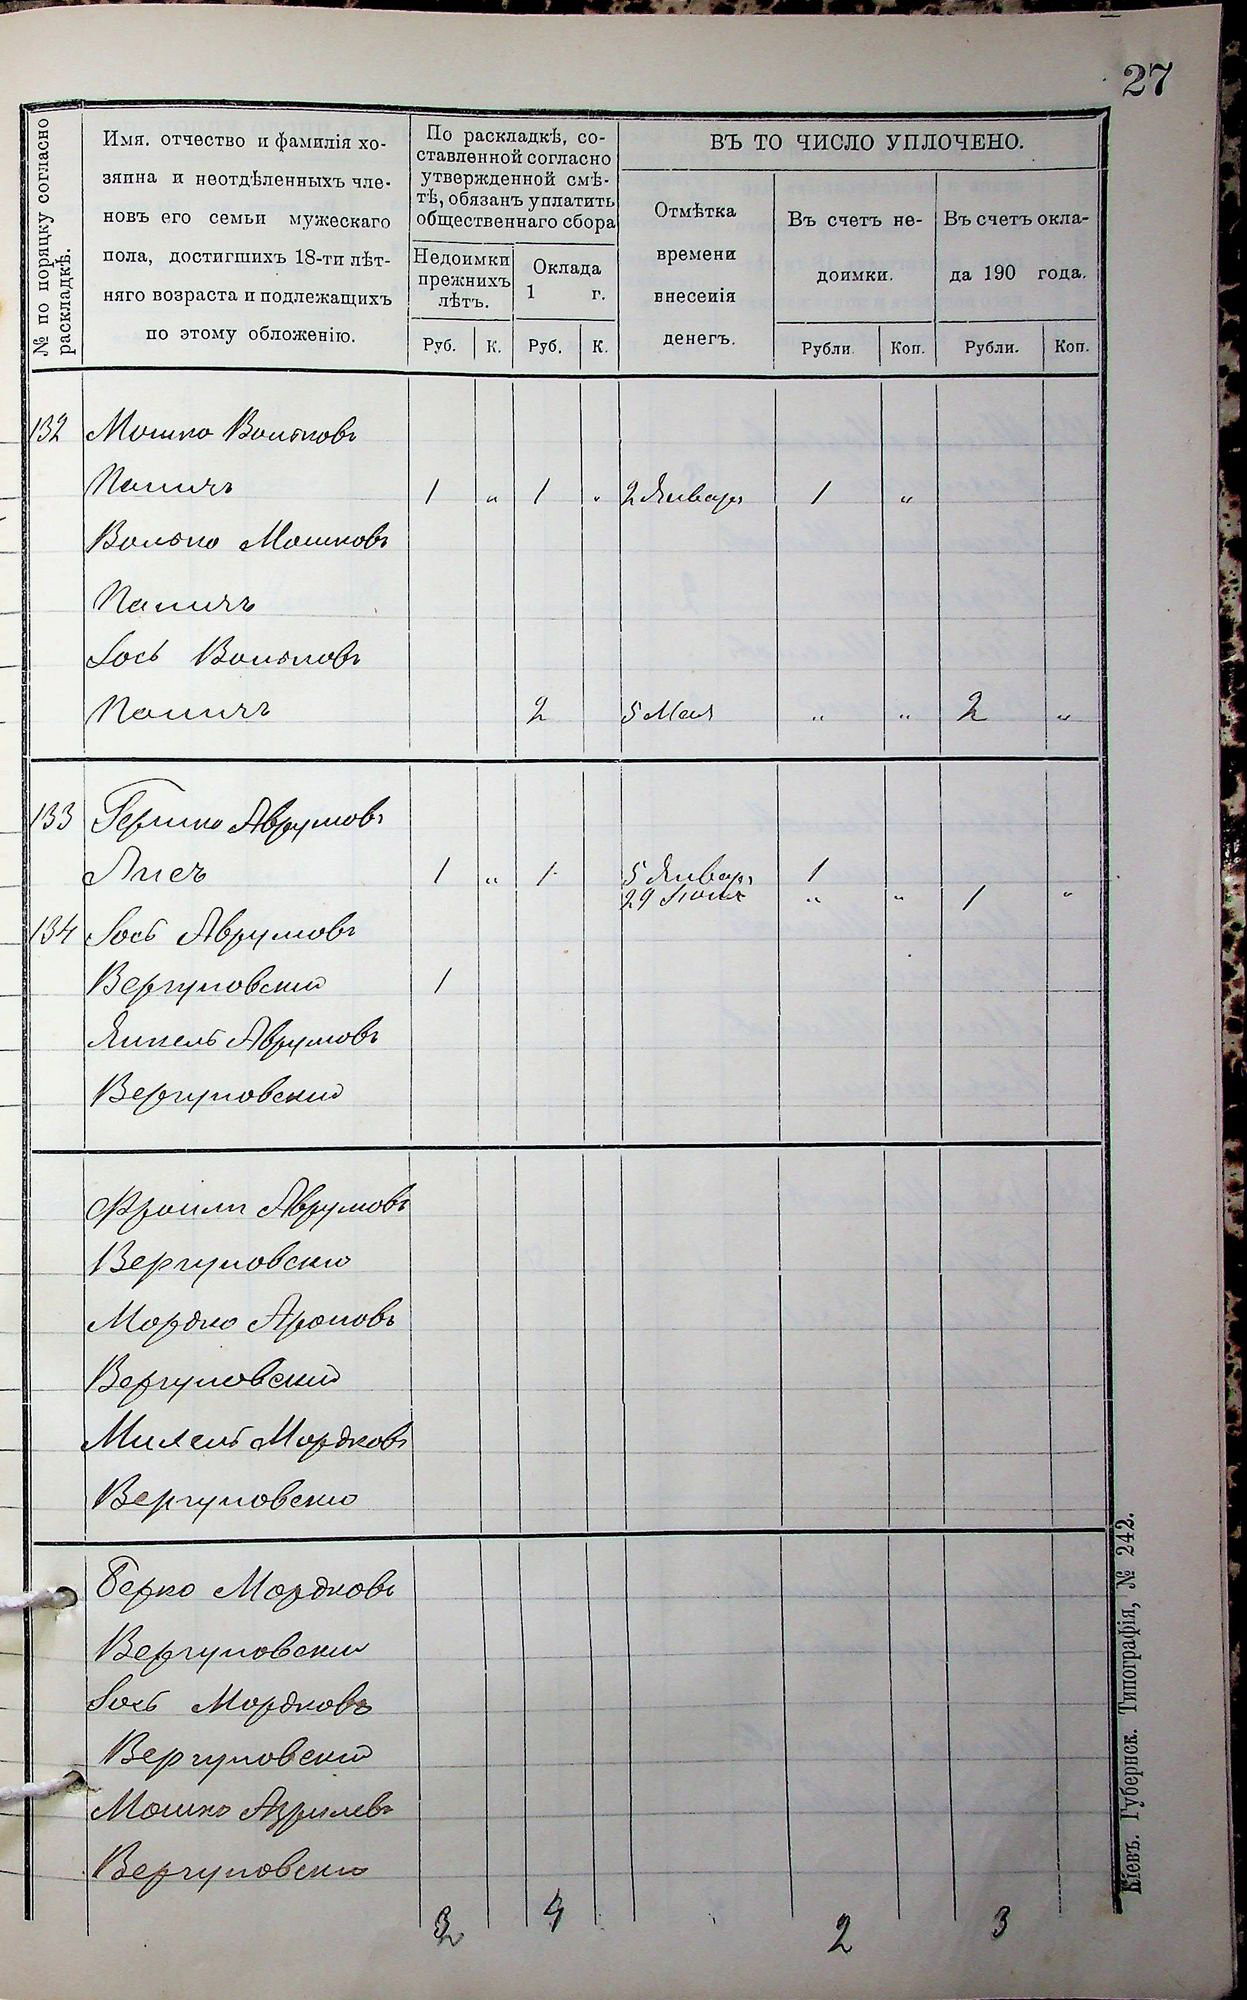 27
№ по порядку согласно раскладкѣ.
Имя. отчество и фамилія хо-
зяина и неотдѣленныхъ чле-
новъ его семьи мужескаго
пола, достигшихъ 18-ти лѣт-
няго возраста и подлежащихъ
по этому обложенію.
По раскладкѣ, со-
ставленной согласно
утвержденной смѣ-
тѣ, обязанъ уплатить
общественнаго сбора
Недоимки
прежнихъ
лѣтъ.
Оклада
1 г.
Руб. К. Руб. К.
ВЪ ТО ЧИСЛО УПЛОЧЕНО.
Отмѣтка
времени
внесенія
денегъ.
Въ счетъ не-
доимки.
Въ счетъ окла-
да 190 года.
Рубли Коп. Рубли. Коп.
132 Мошко Вольковъ
1 „ 1 „ 2 Январь 1 „
Волько Мошковъ
Іось Вольковъ
2 5 Мая „ „ 2 „
133 Гершко Аврумовъ
1 „ 1 5 Январь 1
29 „ „ 1 „
134 Іось Аврумовъ
Вергуновскій 1
Янкель Аврумовъ
Вергуновскій
Фроимъ Аврумовъ
Вергуновскій
Мордко Ароновъ
Вергуновскій
Михель Мордковъ
Вергуновскій
Берко Мордковъ
Вергуновскій
Іось Мордковъ
Вергуновскій
Мошко Азрилевъ
Вергуновскій
4 2 3
Кіевъ. Губернск. Типографія, № 242.